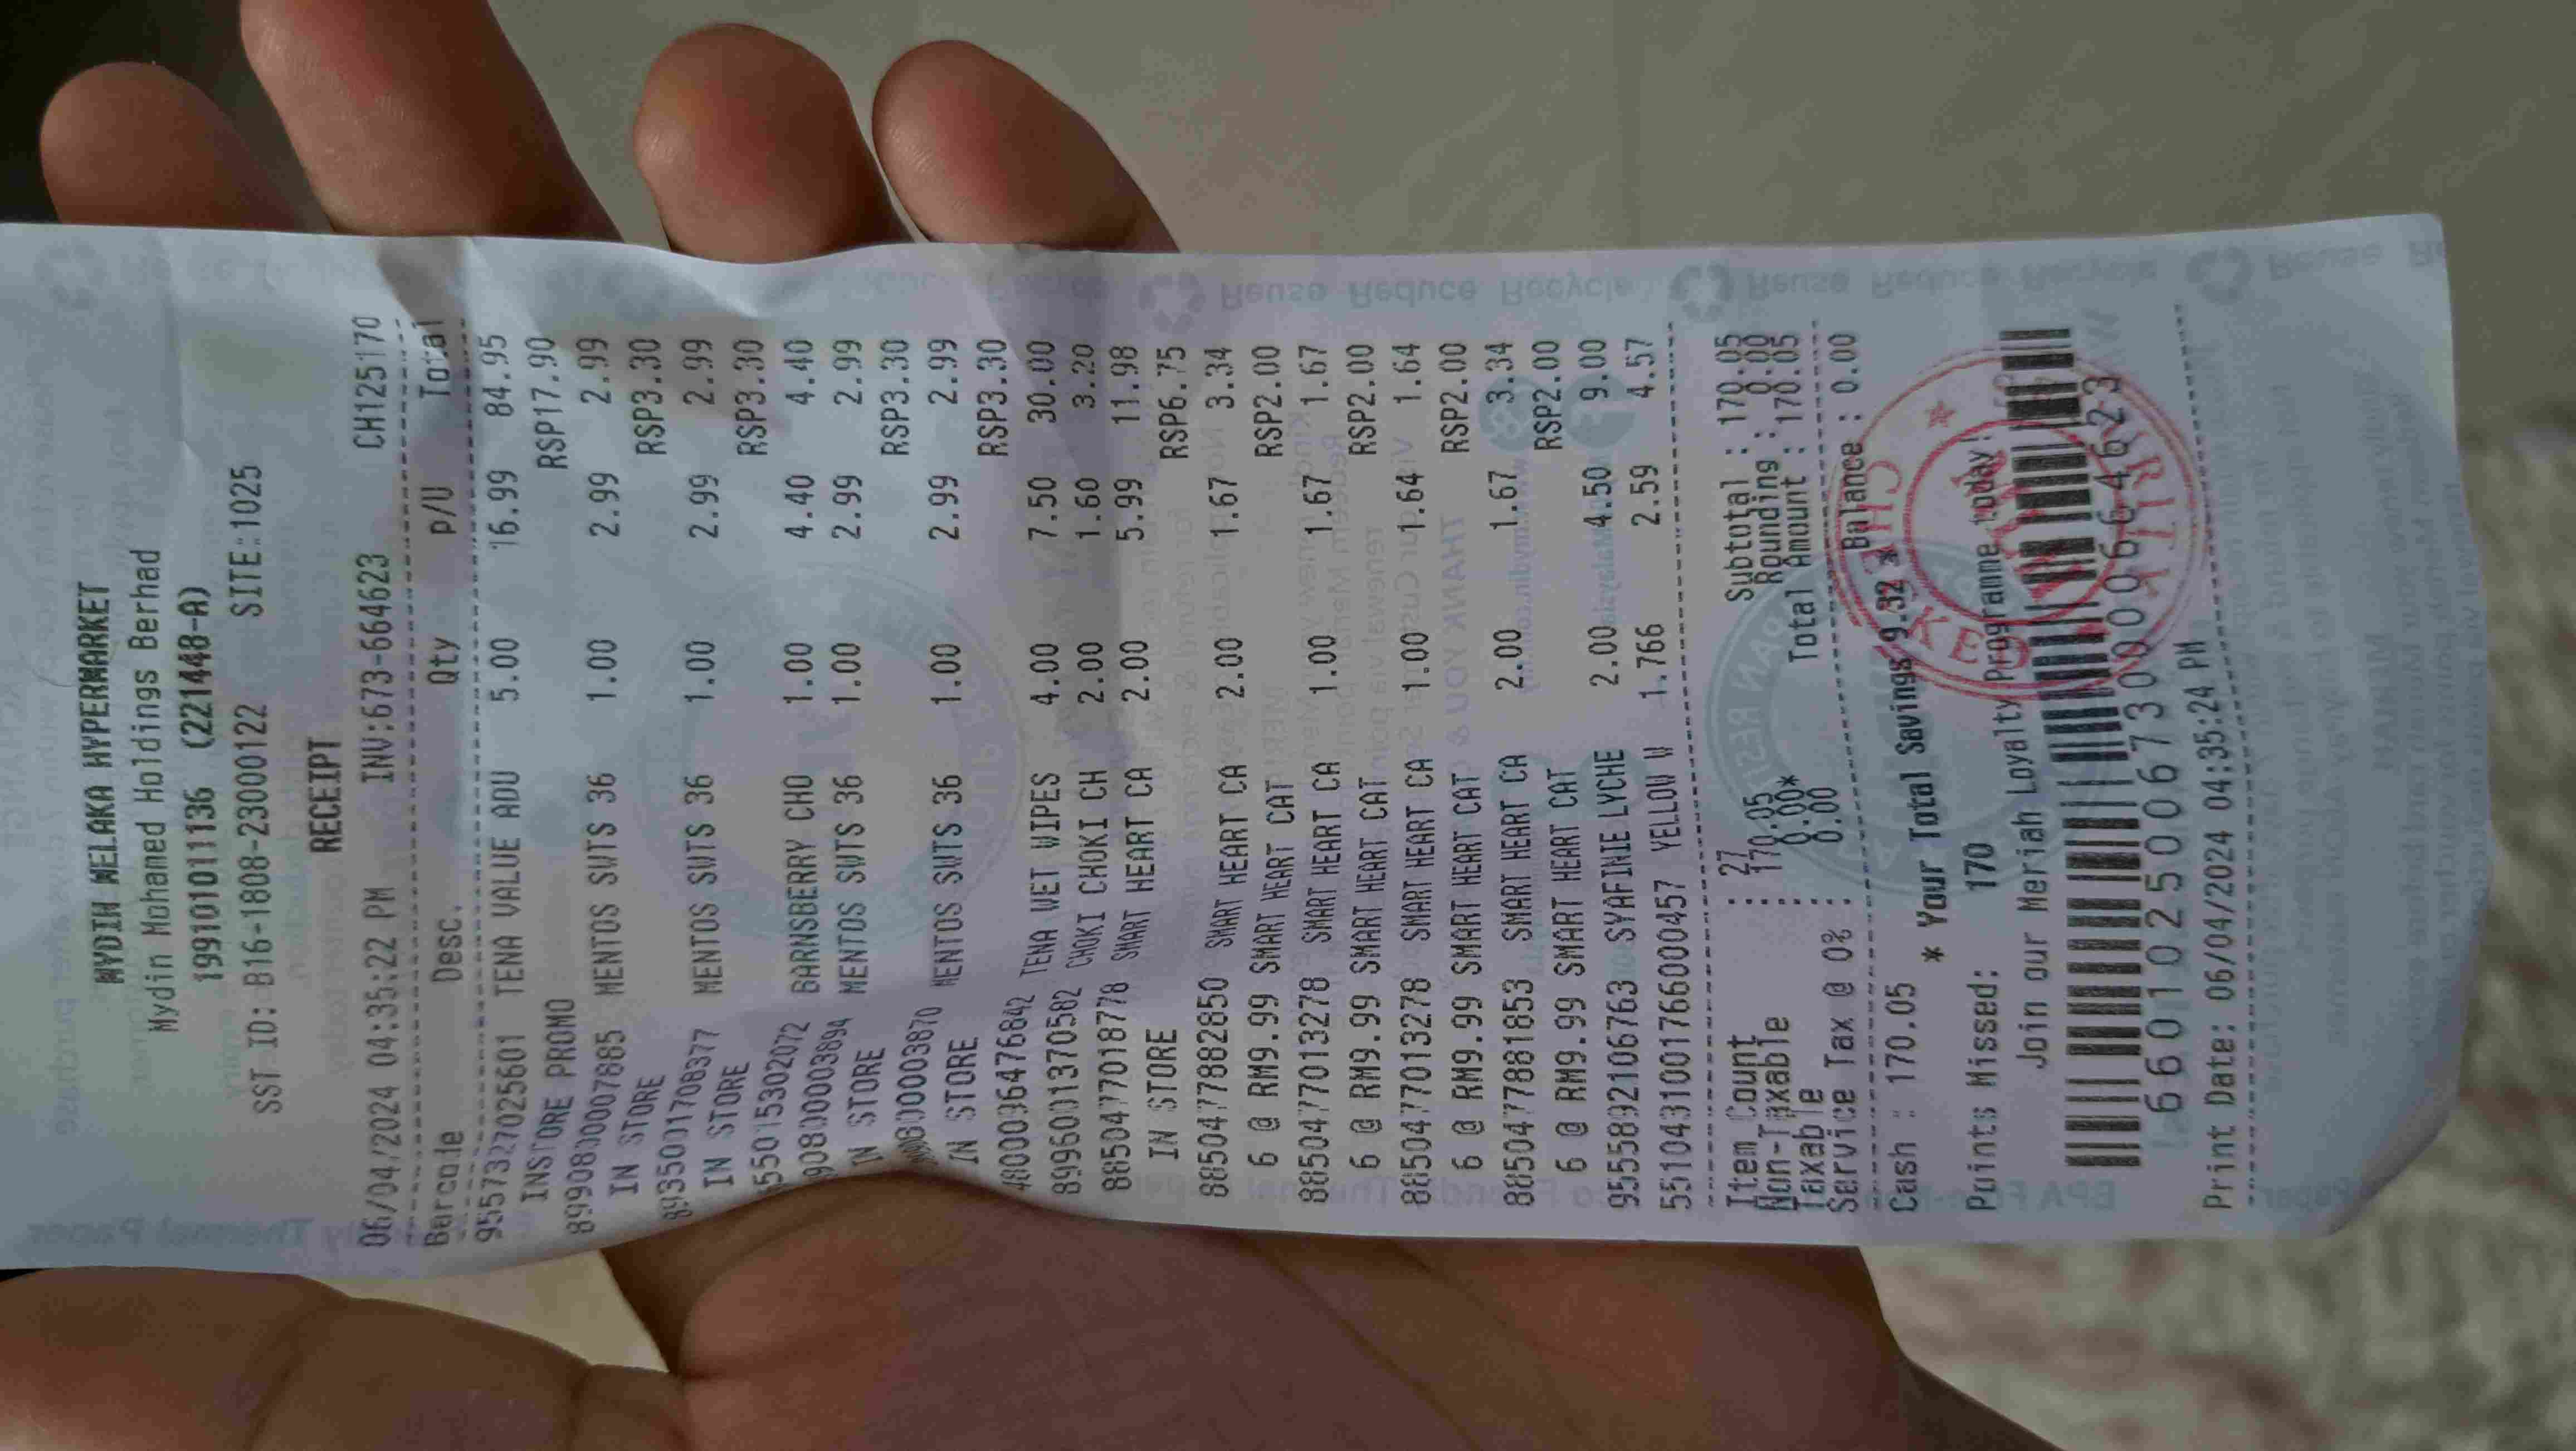 MYDIN MELAKA HYPERMARKET
Mydin Mohamed Holdings Berhad
199101011136 (221448-A)
SST ID: B16-1808-23000122 SITE:1025
RECEIPT
06/04/2024 04:35:22 PM INV:673-664623 CH125170
Barcode Desc. Qty P/U Total
9557327025601 TENA VALUE ADU 5.00 16.99 84.95
INSTORE PROMO RSP17.90
8990800007885 MENTOS SWTS 36 1.00 2.99 2.99
IN STORE RSP3.30
8935001708377 MENTOS SWTS 36 1.00 2.99 2.99
IN STORE RSP3.30
BARNSBERRY CHO 1.00 4.40 4.40
MENTOS SWTS 36 1.00 2.99 2.99
IN STORE RSP3.30
MENTOS SWTS 36 1.00 2.99 2.99
IN STORE RSP3.30
TENA WET WIPES 4.00 7.50 30.00
8996001370582 CHOKI CHOKI CH 2.00 1.60 3.20
8850477018778 SMART HEART CA 2.00 5.99 11.98
IN STORE RSP6.75
8850477882850 SMART HEART CA 2.00 1.67 3.34
6 @ RM9.99 SMART HEART CAT RSP2.00
8850477013278 SMART HEART CA 1.00 1.67 1.67
6 @ RM9.99 SMART HEART CAT RSP2.00
8850477013278 SMART HEART CA 1.00 1.64 1.64
6 @ RM9.99 SMART HEART CAT RSP2.00
8850477881853 SMART HEART CA 2.00 1.67 3.34
6 @ RM9.99 SMART HEART CAT RSP2.00
9555892106763 SYAFINIE LYCHE 2.00 4.50 9.00
5510431001766000457 YELLOW W 1.766 2.59 4.57
Item Count : 27 Subtotal : 170.05
Non-Taxable : 170.05 Rounding : 0.00
Taxable : 0.00* Total Amount : 170.05
Service Tax @ 0% : 0.00
Cash : 170.05 Balance : 0.00
* Your Total Savings 9.32 *
Points Missed: 170
Join our Meriah Loyalty Programme today!
660102500673000664623
Print Date: 06/04/2024 04:35:24 PM